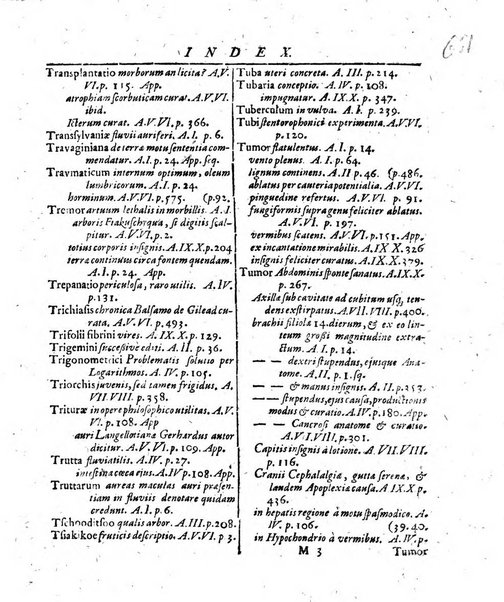 INDEX.
681
Transplantatio morborum an licita? A.V.
VI. p. 115. App.
atrophiam scorbuticam curat. A.V.VI.
ibid.
Icterum curat. A.V.VI. p. 366.
Transsylvaniæ fluvii auriferi. A.I. p. 6.
Travaginiana de terra motus sententia com-
mendatur. A.I. p. 24. App. seq.
Travmaticum internum optimum, oleum
lumbricorum. A.I. p. 24.
horminum. A.V.VI. (p. 92.
Tremor artuum lethalis in morbillis. A.I.
arboris Frakuschrqua, si digitis scal-
pitur. A.V.VI. p. 2.
totius corporis insignis. A.IX.X. p. 204
terra continuus circa fontem quendam.
A.I. p. 23. App.
Trepanatio periculosa, raro utilis. A.IV.
p. 131.
Trichiasis chronica Balsamo de Gilead cu-
rata. A.V.VI. p. 493.
Trifolii fibrini vires. A.VI. p. 129.
Trigemini successive editi. A.II. p. 36.
Trigonometrici Problematis solutio per
Logarithmos. A.IV. p. 105.
Triorchis juvenis, sed tamen frigidus. A.
VII.VIII. p. 358.
Trituræ in opere philosophico utilitas. A.V.
VI. p. 118. App.
auri Langelloriana Gerhardus autor
dicitur. A.V.VI. p. 119. App.
Trutta fluviatilis. A.IV. p. 27.
intestina cæca ejus. A.IV. p. 108. App.
Truttarum aureas maculas auri præsen-
tiam in fluviis denotare quidam
credunt. A.I. p. 6.
Tschonditsso qualis arbor. A.III. p. 208.
Tsiakikoe fruticis descriptio. A.V.VI. p. 3.
Tuba uteri concreta. A.III. p. 214.
Tubaria conceptio. A.IV. p. 108.
impugnatur. A.IX.X. p. 347.
Tuberculum in vulva. A.I. p. 239.
Tubi stentorophonici experimenta. A.V.VI.
p. 120.
Tumor flatulentus. A.I. p. 14.
vento plenus. A.I. p. 64.
lignum continens. A.II p. 46. (p. 486.
ablatus per cauteria potentialia. A.V.VI.
pinguedine refertus. A.V.VI. p. 91.
fungiformis supra genu feliciter ablatus.
A.V.VI. p. 197.
vermibus scatens. A.V.VI. p. 151. App.
ex incantatione mirabilis. A.IX X. 326
insignis feliciter curatus. A.IX.X. 376.
Tumor Abdominis sponte sanatus. A.IX.X.
p. 267.
Axilla sub cavitate ad cubitum usq, ten-
dens exstirpatus. A.VII.VIII. p. 400.
brachii filiola 14. dierum, & ex eo lin-
teum großi magnitudine extra-
ctum. A.I. p. 14.
— — dextri stupendus, ejusque Ana-
tome. A.II p. 1. sq.
— — & manus insignis. A.II. p. 353.
— — stupendus, ejus causa, productionis
modus & curatio. A.IV. p. 180. App.
— — Cancrosi anatome & curatio.
A.VII.VIII. p. 301.
Capitis insignis a lotione. A.VII.VIII.
p. 116.
Cranii Cephalalgiæ, gutta serena, &
laudem Apoplexia causa. A IX.X p.
436.
in hepatis regione à motu spasmodico. A.
IV. p. 106. (39. 40.
in Hypochondrio à vermibus. A.IV. p.
M 3
Tumor